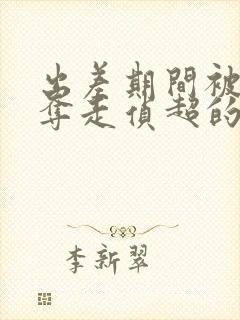 出差期間被
奪走偵超的
李新翠